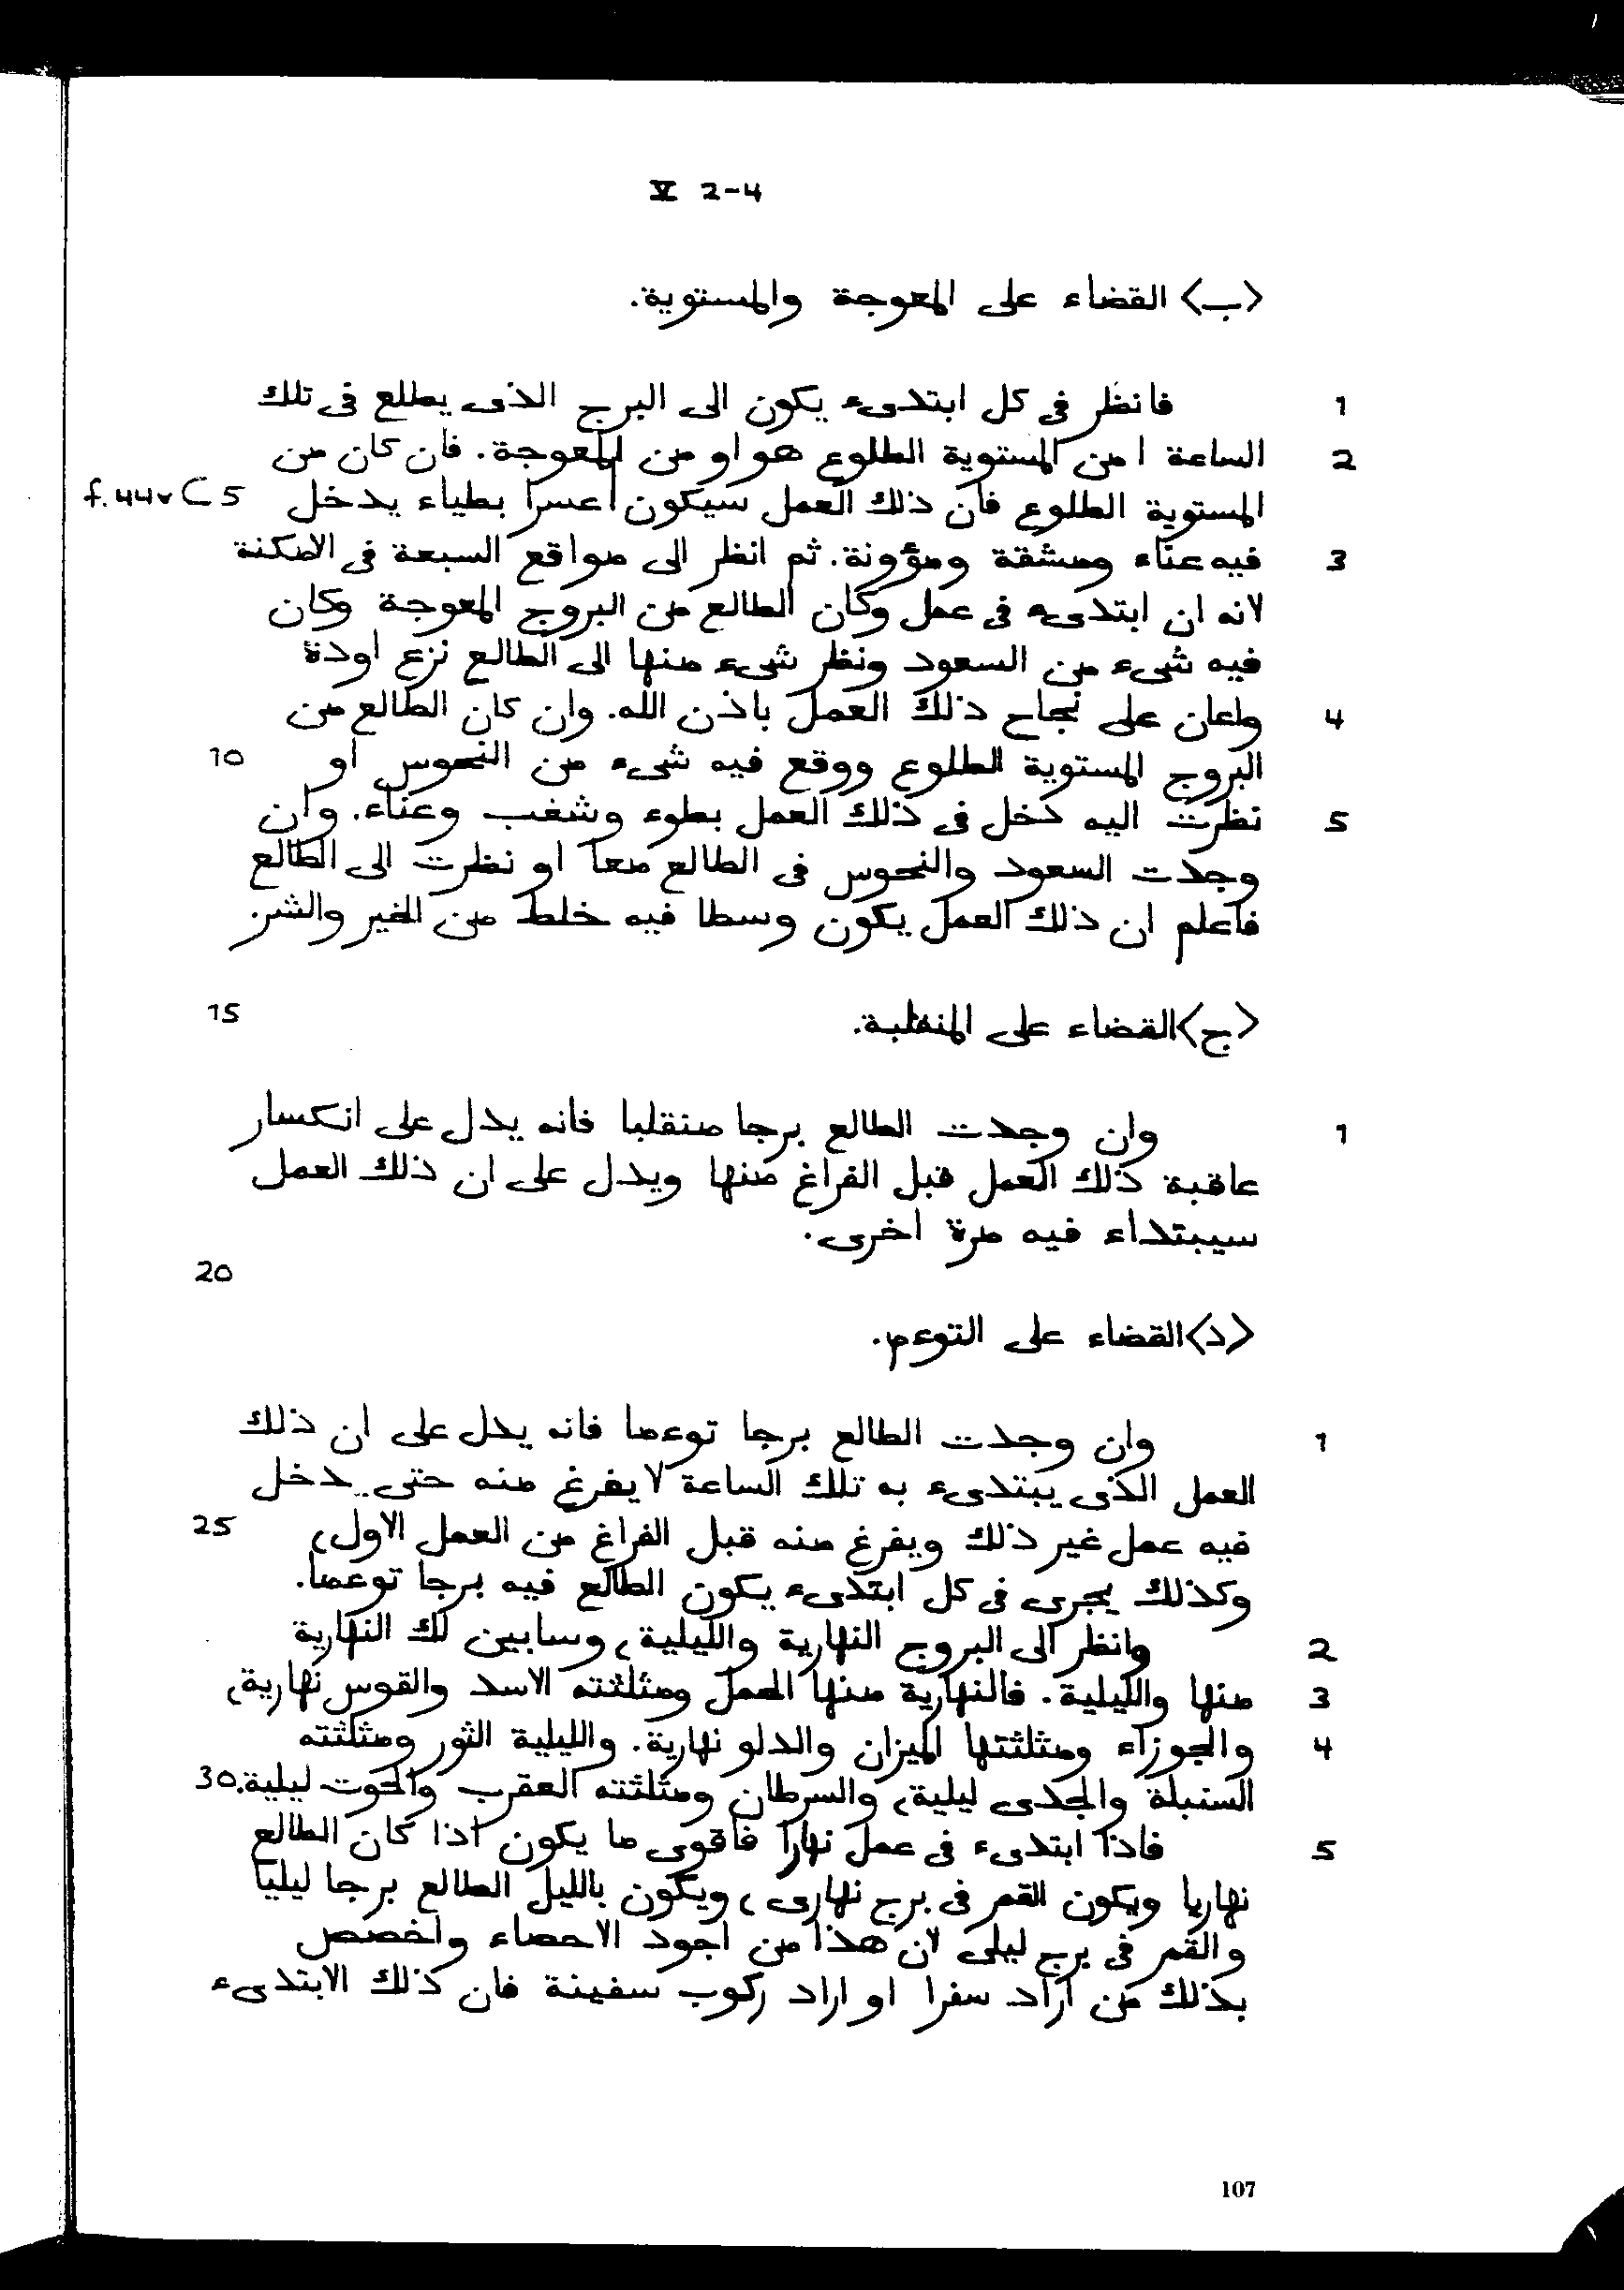 V 2-4
<ب> القضاء على المعوجة والمستوية.
1 فانظر فى كل ابتدىء يكون الى البرج الذى يطلع فى تلك
2 الساعة امن المستوية الطلوع هو او من المعوجة. فان كان من
المستوية الطلوع فان ذلك العمل سيكون | عسرا بطياء يدخل 5 f.44v C
3 فيه عناء ومشقة ومؤونة. ثم انظر الى مواقع السبعة فى الامكنة
لانه ان ابتدىء فى عمل وكان الطالع من البروج المعوجة وكان
فيه شىء من السعود ونظر شىء منها الى الطالع نزع اودة
4 واعان على نجاح ذلك العمل باذن الله. وان كان الطالع من
البروج المستوية الطلوع ووقع فيه شىء من النحوس او 10
5 نظرت اليه دخل فى ذلك العمل بطوء وشغب وعناء. وان
وجدت السعود والنحوس فى الطالع معا او نظرت الى الطالع
فاعلم ان ذلك العمل يكون وسطا فيه خلط من الخير والشر.
<ج> القضاء على المنقلبة. 15
1 وان وجدت الطالع برجا منقلبا فانه يدل على انكسار
عاقبة ذلك العمل قبل الفراغ منها ويدل على ان ذلك العمل
سيبتداء فيه مرة اخرى.
20
<د> القضاء على التوءم.
1 وان وجدت الطالع برجا توءما فانه يدل على ان ذلك
العمل الذى يبتدىء به تلك الساعة لا يفرغ منه حتى يدخل
فيه عمل غير ذلك ويفرغ منه قبل الفراغ من العمل الاول، 25
وكذلك يجرى فى كل ابتدىء يكون الطالع فيه برجا توءما.
2 وانظر الى البروج النهارية والليلية، وسابين لك النهارية
3 منها والليلية. فالنهارية منها الحمل ومثلثته الاسد والقوس نهارية،
4 والجوزاء ومثلثتها الميزان والدلو نهارية. والليلية الثور ومثلثته
السنبلة والجدى ليلية، والسرطان ومثلثته العقرب والحوت ليلية. 30
5 فاذا ابتدىء فى عمل نهارا فاقوى ما يكون اذا كان الطالع
نهاريا ويكون القمر فى برج نهارى، ويكون بالليل الطالع برجا ليليا
والقمر فى برج ليلى لان هذا من اجود الاحصاء واخصص
بذلك من اراد سفرا او اراد ركوب سفينة فان ذلك الابتدىء
107